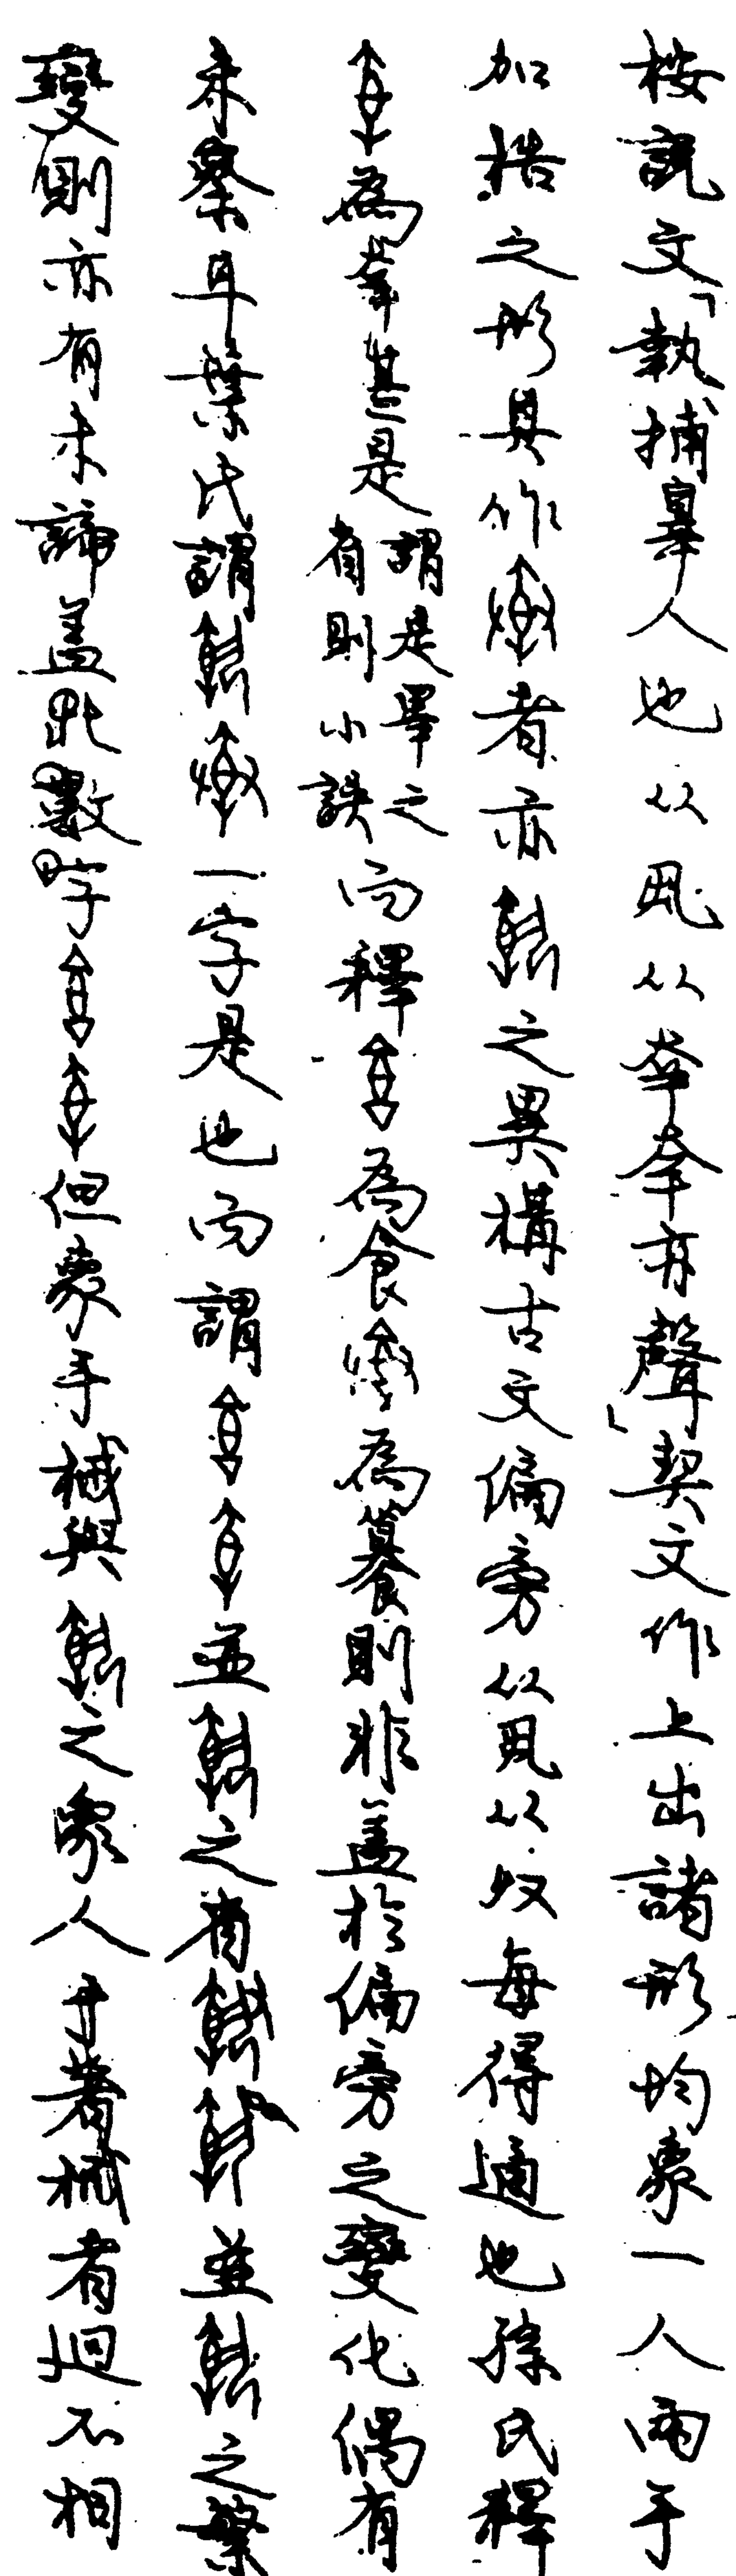 按說文「執捕辠人也从丮从㚔㚔亦聲」契文作上出諸形均象一人兩手
加梏之形其作者亦之異構古文偏旁从丮从女每得通也孫氏釋
為㚔甚是謂是睪之省則小誤而釋為食為䉵則非蓋於偏旁之變化偶有
未察耳葉氏謂一字是也而謂並之省並之繁
變則亦有未諦蓋此數字但象手械與之象人手著械者迥不相